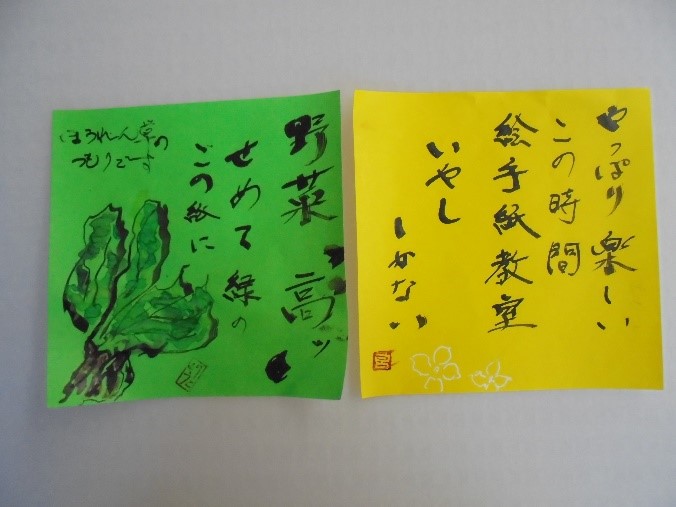 やっぱり楽しい
この時間
絵手紙教室
いやし
しかない
野菜高ッ
せめて緑の
この紙に
ほうれん草の
つもりでーす